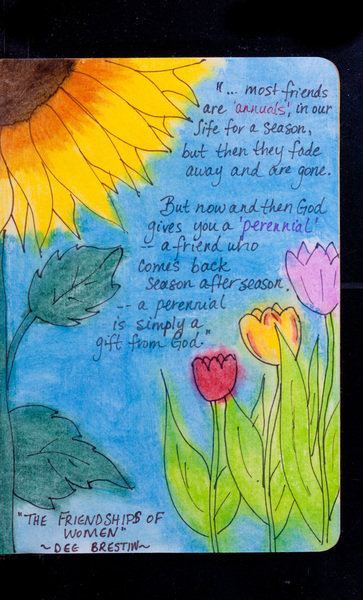 "... most friends
are 'annuals', in our
life for a season,
but then they fade
away and are gone.
But now and then God
gives you a 'perennial'
- a friend who
comes back
season after season.
-- a perennial
is simply a
gift from God."
"THE FRIENDSHIPS OF
WOMEN"
~DEE BRESTIN~